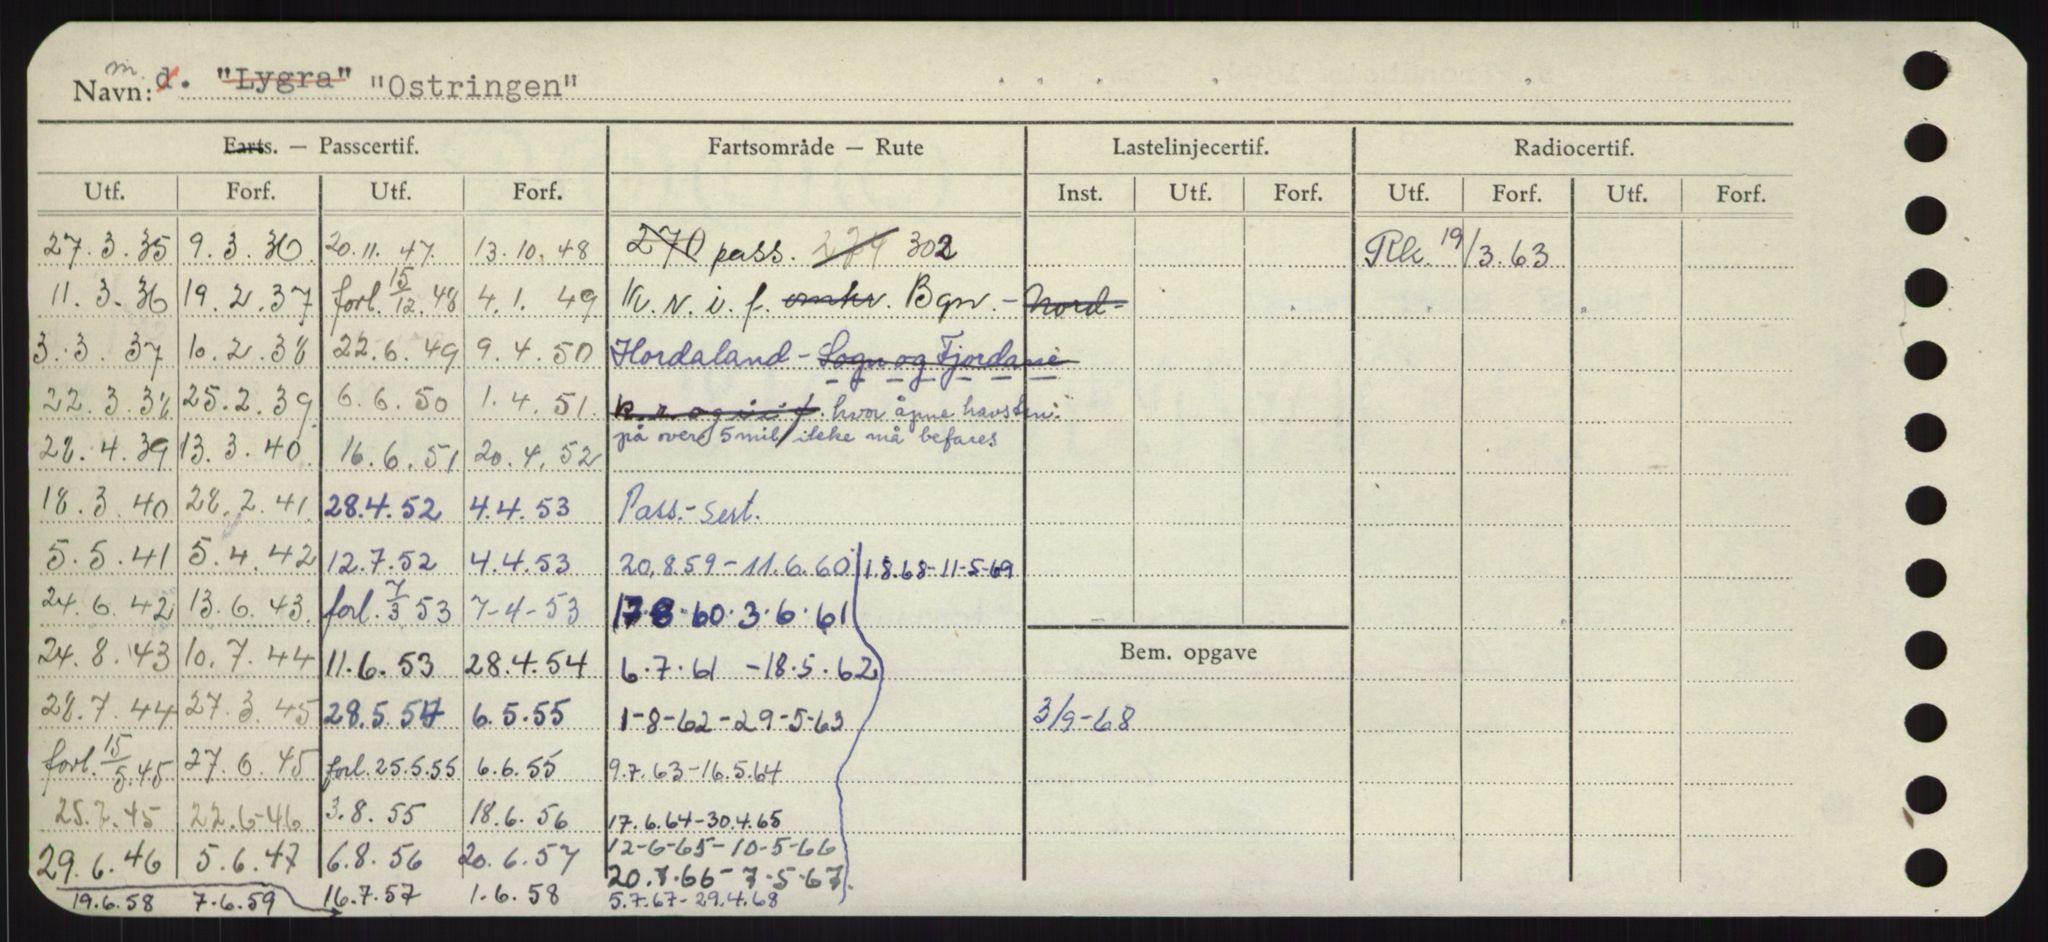 Navn: m. d. "Lygra" "Ostringen"
Farts. — Passcertif. Fartsområde — Rute Lastelinjecertif. Radiocertif.
Utf. Forf. Utf. Forf. Inst. Utf. Forf. Utf. Forf. Utf. Forf.
27.3.35 9.3.36. 20.11.47. 13.10.48 270 pass. 274 302 Rk. 19/3.63
11.3.36 19.2.37 forl. 15/12.48 4.1.49 K.v.i.f. omkr. Bgn. - Nord-
3.3.37 10.2.38 22.6.49 9.4.50 Hordaland - Sogn og Fjordane
22.3.38 25.2.39 6.6.50 1.4.51. k.r. og i.i.f. hvor åpne havstrekn.
på over 5 mil ikke må befares
28.4.39 13.3.40. 16.6.51 20.4.52
18.3.40 28.2.41. 28.4.52 4.4.53 Pass.-sert.
5.5.41 5.4.42 12.7.52 4.4.53 20.8.59-11.6.60 1.8.68-11-5-69
24.6.42 13.6.43. forl. 7/3 53 7-4-53 17.8.60.3.6.61
24.8.43 10.7.44 11.6.53 28.4.54 6.7.61 -18.5.62
28.7.44 27.3.45 28.5.54 6.5.55 1-8-62-29-5-63 Bem. opgave
3/9-68
forl. 15/5.45 27.6.45 forl.25.5.55 6.6.55 9.7.63-16.5.64
25.7.45 22.6-46 3.8.55 18.6.56 17.6.64-30.4.65
29.6.46 5.6.47 6.8.56 20.6.57 12-6-65-10-5-66
20.7.66-7.5.67.
19.6.58 7.6.59 16.7.57 1.6.58 5.7.67-29.4.68